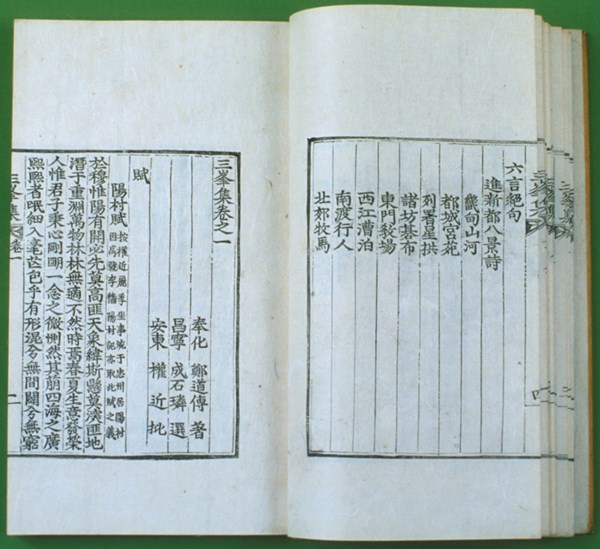 六言絕句
進新都八景詩
畿甸山河
都城宮苑
列署星拱
諸坊碁布
東門敎場
西江漕泊
南渡行人
北郊牧馬
三峯集卷之一
奉化 鄭道傳 著
昌寧 成石璘 選
安東 權近 批
賦
陽村賦 按權近麗季坐事
因爲號李穡陽村記亦取此賦之義
於穆惟陽有開必先莫高匪天象緯斯懸莫濱匪地
潛于重淵萬物林林無適不然時焉春夏生意發榮
人惟君子秉心剛明一念之微惻然其萌四海之廣
熙熙者氓細入毫芒包乎有形混兮無間闢兮無窮
三峯集 卷一